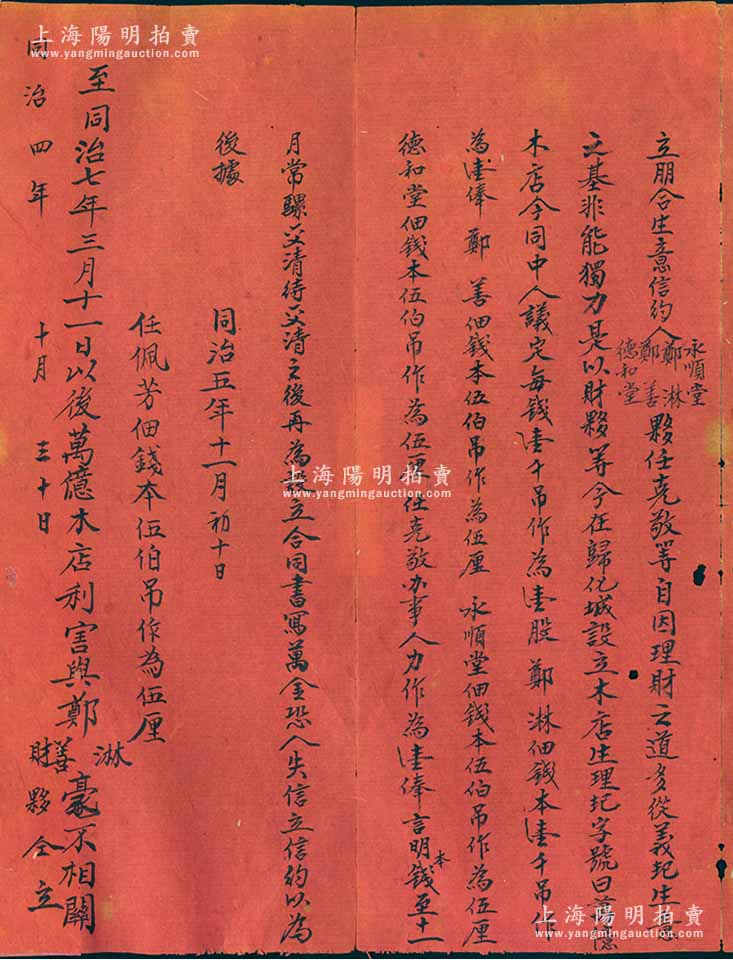 立朋合生意信約人鄭淋 鄭善 永順堂 德和堂 夥任尭敬等自因理財之道多從義起生意
之基非能獨力是以財夥等今在歸化城設立木店生理圯字號曰萬億
木店今同中人議定每錢壹千吊作為壹股鄭淋佃錢本壹千吊作
為壹俸鄭善佃錢本伍伯吊作為伍厘永順堂佃錢本伍伯吊作為伍厘
德和堂佃錢本伍伯吊作為伍厘任尭敬办事人力作為壹俸言明本錢至十一
月常騾交清待交清之後再為設立合同書寫萬金恐人失信立信約以為
後據
同治五年十一月初十日
任佩芳佃錢本伍伯吊作為伍厘
至同治七年三月十一日以後萬億木店利害與鄭淋善毫不相關
同治四年 十月 三十日 財夥仝立
上海陽明拍賣
www.yangmingauction.com
上海陽明拍賣
www.yangmingauction.com
上海陽明拍賣
www.yangmingauction.com
上海陽明拍賣
www.yangmingauction.com
上海陽明拍賣
www.yangmingauction.com
上海陽明拍賣
www.yangmingauction.com